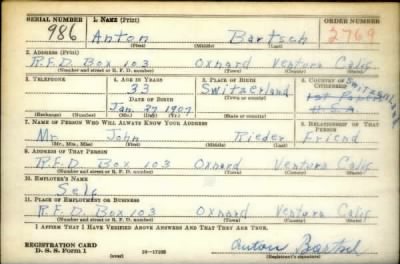 SERIAL NUMBER 1. NAME (Print) ORDER NUMBER
986 Anton Bartsch 2769
(First) (Middle) (Last)
2. ADDRESS (Print)
R.F.D. Box 103 Oxnard Ventura Calif
(Number and street or R. F. D. number) (Town) (County) (State)
3. TELEPHONE 4. AGE IN YEARS 5. PLACE OF BIRTH 6. COUNTRY OF CITIZENSHIP
33 Switzerland Switzerland
DATE OF BIRTH (Town or county) 1st Papers
Jan. 27 1907 U.S.A
(Exchange) (Number) (Mo.) (Day) (Yr.) (State or country)
7. NAME OF PERSON WHO WILL ALWAYS KNOW YOUR ADDRESS 8. RELATIONSHIP OF THAT PERSON
Mr. John Rieder Friend
(Mr., Mrs., Miss) (First) (Middle) (Last)
9. ADDRESS OF THAT PERSON
R.F.D Box 103 Oxnard Ventura Calif
(Number and street or R. F. D. number) (Town) (County) (State)
10. EMPLOYER'S NAME
Self
11. PLACE OF EMPLOYMENT OR BUSINESS
R.F.D Box 103 Oxnard Ventura Calif
(Number and street or R. F. D. number) (Town) (County) (State)
I AFFIRM THAT I HAVE VERIFIED ABOVE ANSWERS AND THAT THEY ARE TRUE.
REGISTRATION CARD
D. S. S. Form 1 (over) Anton Bartsch
(Registrant's signature)